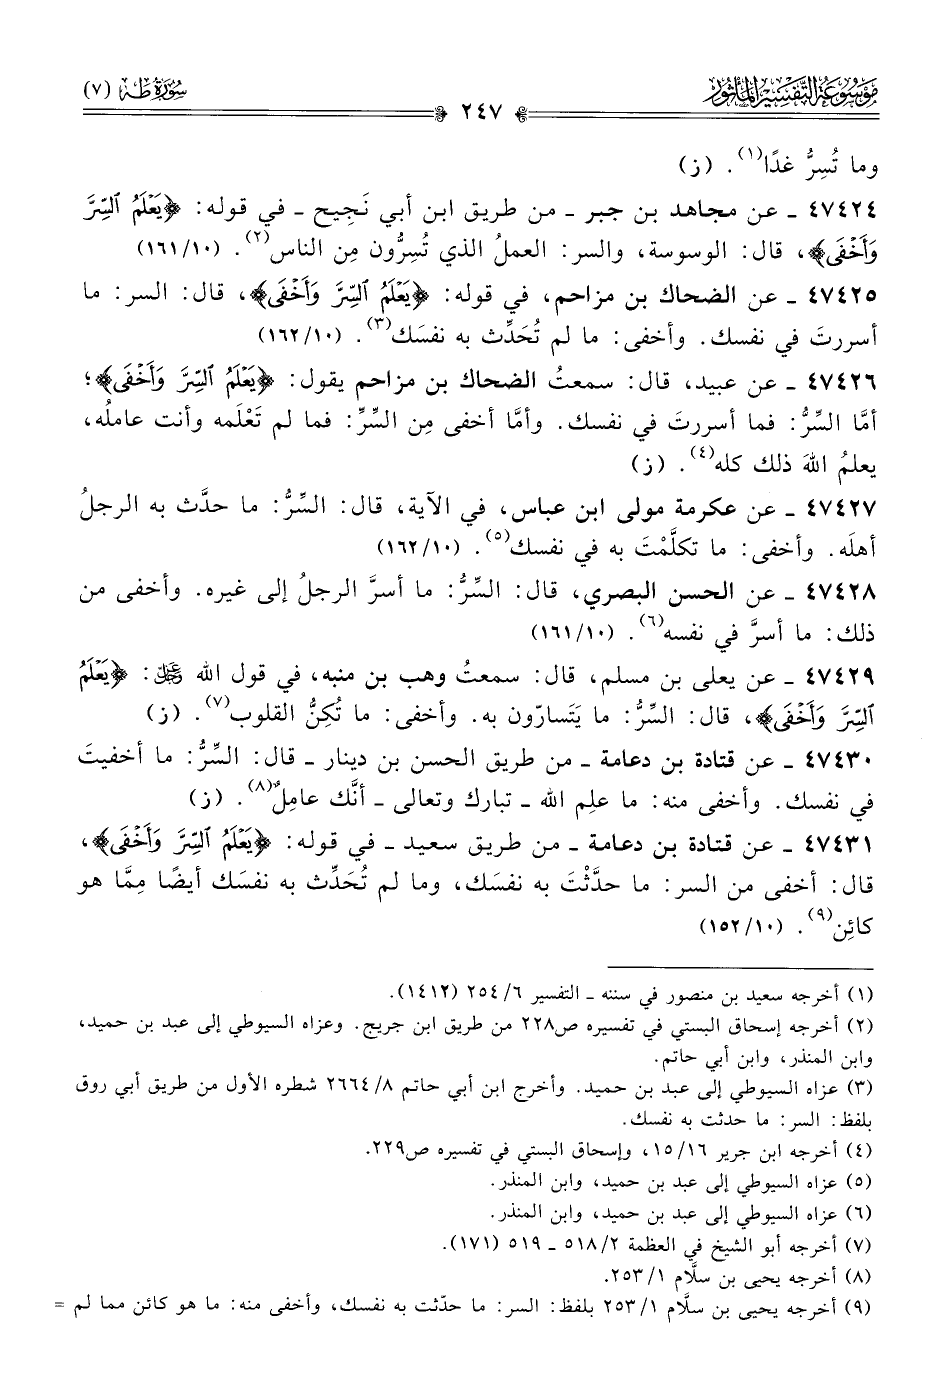 مَوْسُوعَة التَّفْسِير المَأْثُور
سُورَة طه (٧)
٢٤٧
وما تُسِرُّ غدًا(١). (ز)
٤٧٤٢٤ ـ عن مجاهد بن جبر ـ من طريق ابن أبي نَجِيح ـ في قوله: ﴿يَعْلَمُ ٱلسِّرَّ
وَأَخْفَى﴾، قال: الوسوسة، والسر: العملُ الذي تُسِرُّون مِن الناس(٢). (١٠/ ١٦١)
٤٧٤٢٥ ـ عن الضحاك بن مزاحم، في قوله: ﴿يَعْلَمُ ٱلسِّرَّ وَأَخْفَى﴾، قال: السر: ما
أسررتَ في نفسك. وأخفى: ما لم تُحَدِّث به نفسَك(٣). (١٠/ ١٦٢)
٤٧٤٢٦ ـ عن عبيد، قال: سمعتُ الضحاك بن مزاحم يقول: ﴿يَعْلَمُ ٱلسِّرَّ وَأَخْفَى﴾؛
أمَّا السِّرُّ: فما أسررتَ في نفسك. وأمَّا أخفى مِن السِّرِّ: فما لم تَعْلَمه وأنت عامله،
يعلمُ اللهَ ذلك كله(٤). (ز)
٤٧٤٢٧ ـ عن عكرمة مولى ابن عباس، في الآية، قال: السِّرُّ: ما حدَّث به الرجلُ
أهلَه. وأخفى: ما تكلَّمْتَ به في نفسك(٥). (١٠/ ١٦٢)
٤٧٤٢٨ ـ عن الحسن البصري، قال: السِّرُّ: ما أسرَّ الرجلُ إلى غيره. وأخفى من
ذلك: ما أسرَّ في نفسه(٦). (١٠/ ١٦١)
٤٧٤٢٩ ـ عن يعلى بن مسلم، قال: سمعتُ وهب بن منبه، في قول الله ﷿: ﴿يَعْلَمُ
ٱلسِّرَّ وَأَخْفَى﴾، قال: السِّرُّ: ما يَتَسارّون به. وأخفى: ما تُكِنُّ القلوب(٧). (ز)
٤٧٤٣٠ ـ عن قتادة بن دعامة ـ من طريق الحسن بن دينار ـ قال: السِّرُّ: ما أخفيتَ
في نفسك. وأخفى منه: ما علِم الله ـ تبارك وتعالى ـ أنَّك عامِلٌ(٨). (ز)
٤٧٤٣١ ـ عن قتادة بن دعامة ـ من طريق سعيد ـ في قوله: ﴿يَعْلَمُ ٱلسِّرَّ وَأَخْفَى﴾،
قال: أخفى من السر: ما حدَّثْتَ به نفسَك، وما لم تُحَدِّث به نفسَك أيضًا مِمَّا هو
كائِن(٩). (١٠/ ١٥٢)
(١) أخرجه سعيد بن منصور في سننه ـ التفسير ٦/ ٢٥٤ (١٤١٢).
(٢) أخرجه إسحاق البستي في تفسيره ص٢٢٨ من طريق ابن جريج. وعزاه السيوطي إلى عبد بن حميد،
وابن المنذر، وابن أبي حاتم.
(٣) عزاه السيوطي إلى عبد بن حميد. وأخرج ابن أبي حاتم ٨/ ٢٦٦٤ شطره الأول من طريق أبي روق
بلفظ: السر: ما حدثت به نفسك.
(٤) أخرجه ابن جرير ١٦/ ١٥، وإسحاق البستي في تفسيره ص٢٢٩.
(٥) عزاه السيوطي إلى عبد بن حميد، وابن المنذر.
(٦) عزاه السيوطي إلى عبد بن حميد، وابن المنذر.
(٧) أخرجه أبو الشيخ في العظمة ٢/ ٥١٨ ـ ٥١٩ (١٧١).
(٨) أخرجه يحيى بن سلَّام ١/ ٢٥٣.
(٩) أخرجه يحيى بن سلَّام ١/ ٢٥٣ بلفظ: السر: ما حدّثت به نفسك، وأخفى منه: ما هو كائن مما لم =